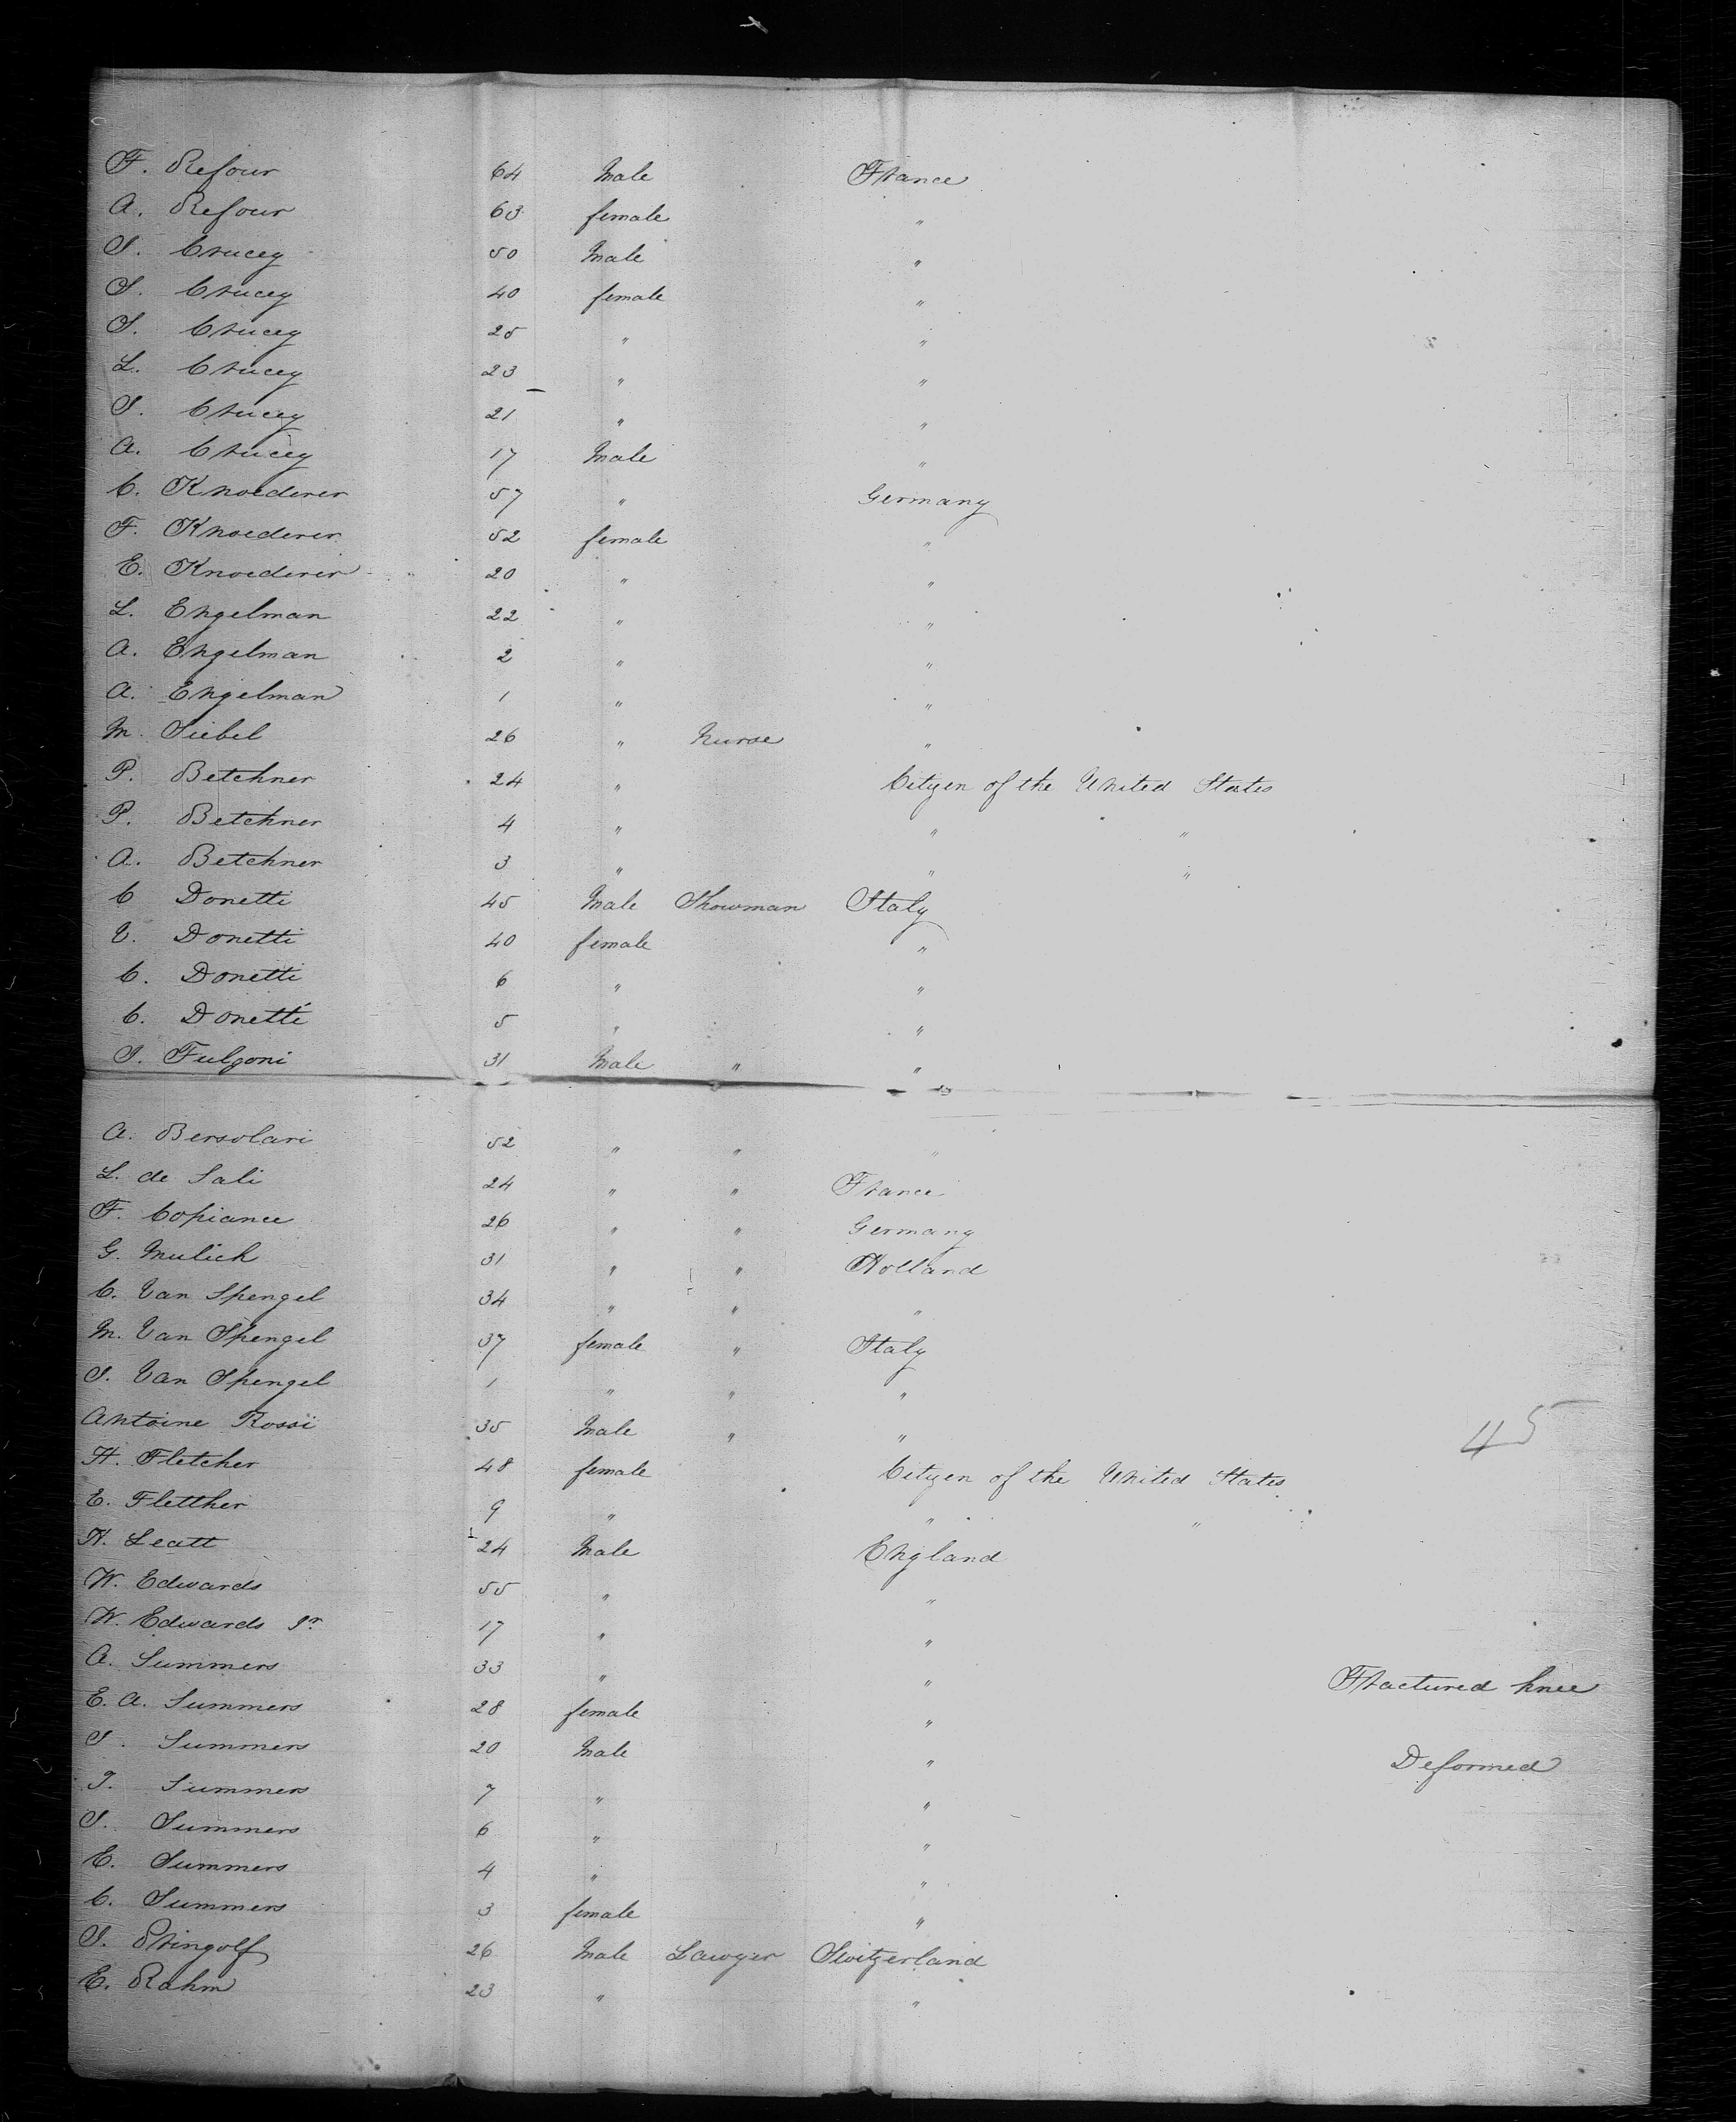 F. Refour 64 Male France
A. Refour 63 female "
S. Crucey 50 Male "
S. Crucey 40 female "
S. Crucey 25 " "
L. Crucey 23 " "
S. Crucey 21 " "
A. Crucey 17 Male "
C. Knoederer 57 " Germany
F. Knoederer 52 female "
E. Knoederer 20 " "
L. Engelman 22 " "
A. Engelman 2 " "
A. Engelman 1 " "
M. Siebel 26 " Nurse "
P. Betchner 24 " Cityen of the United States
P. Betchner 4 " " "
A. Betchner 3 " " "
C Donetti 45 Male Showman Italy
V. Donetti 40 female "
C. Donetti 6 " "
C. Donetti 5 " "
S. Fulgoni 31 Male " "
A. Bersolari 52 " " "
L. de Sali 24 " " France
F. Copiance 26 " " Germany
G. Mulich 31 " " Holland
C. Van Spengel 34 " " "
M. Van Spengel 37 female " Italy
S. Van Spengel 1 " " "
Antoine Rossi 35 Male " "
45
H. Fletcher 48 female Cityen of the United States
E. Fletther 9 " " "
H. Leatt 24 Male England
W. Edwards 55 " "
W. Edwards Jr. 17 " "
A. Summers 33 " " Fractured knee
E. A. Summers 28 female "
S. Summers 20 Male " Deformed
T. Summers 7 " "
S. Summers 6 " "
E. Summers 4 " "
C. Summers 3 female "
S. Stingolf 26 Male Lawyer Switzerland
E. Rahm 23 " "